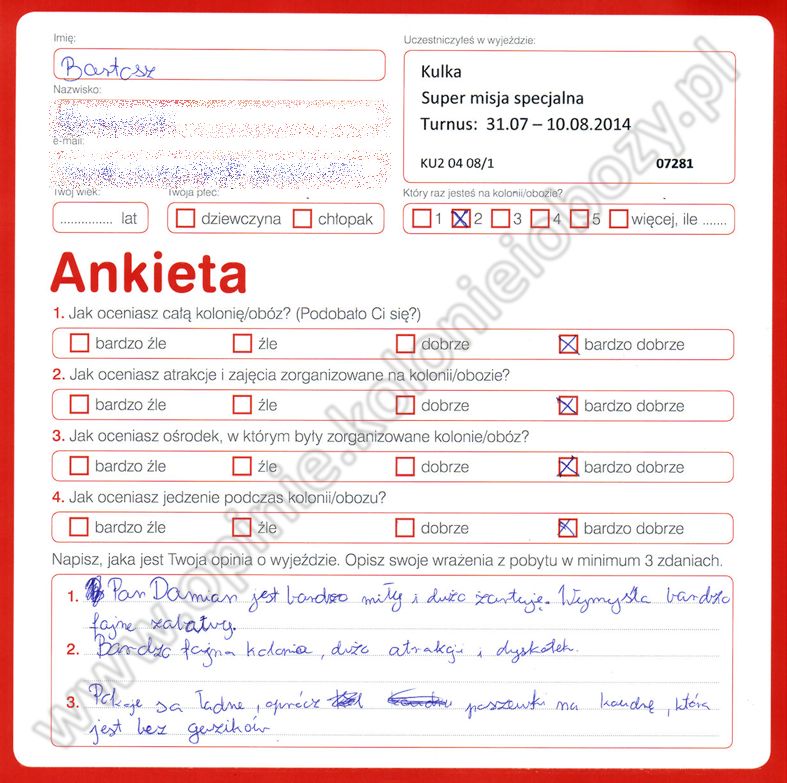 Imię:
Bartosz
Uczestniczyłeś w wyjeździe:
Kulka
Super misja specjalna
Turnus: 31.07 – 10.08.2014
KU2 04 08/1 07281
Nazwisko:
e-mail:
Twój wiek:
.............. lat
Twoja płeć:
dziewczyna chłopak
Który raz jesteś na kolonii/obozie?
1 2 3 4 5 więcej, ile .......
Ankieta
1. Jak oceniasz całą kolonię/obóz? (Podobało Ci się?)
bardzo źle źle dobrze bardzo dobrze
2. Jak oceniasz atrakcje i zajęcia zorganizowane na kolonii/obozie?
bardzo źle źle dobrze bardzo dobrze
3. Jak oceniasz ośrodek, w którym były zorganizowane kolonie/obóz?
bardzo źle źle dobrze bardzo dobrze
4. Jak oceniasz jedzenie podczas kolonii/obozu?
bardzo źle źle dobrze bardzo dobrze
Napisz, jaka jest Twoja opinia o wyjeździe. Opisz swoje wrażenia z pobytu w minimum 3 zdaniach.
1. Pan Damian jest bardzo miły i dużo żartuje. Wymyśla bardzo
fajne zabawy.
2. Bardzo fajna kolonia, dużo atrakcji i dyskotek.
3. Pokoje są ładne, oprócz poszewki na kołdrę, która
jest bez guzików
www.opinie.kolonieiobozy.pl